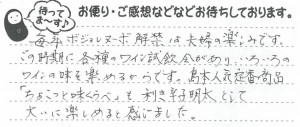 待ってま〜す♪
お便り・ご感想などなどお待ちしております。
毎年ボジョレヌーボ解禁は夫婦の楽しみです。
この時期に各種のワイン試飲会があり、いろいろの
ワインの味を楽しめるからです。島本人気定番商品
「ちょこっと味くらべ」も利き辛子明太として
大いに楽しめると感じました。